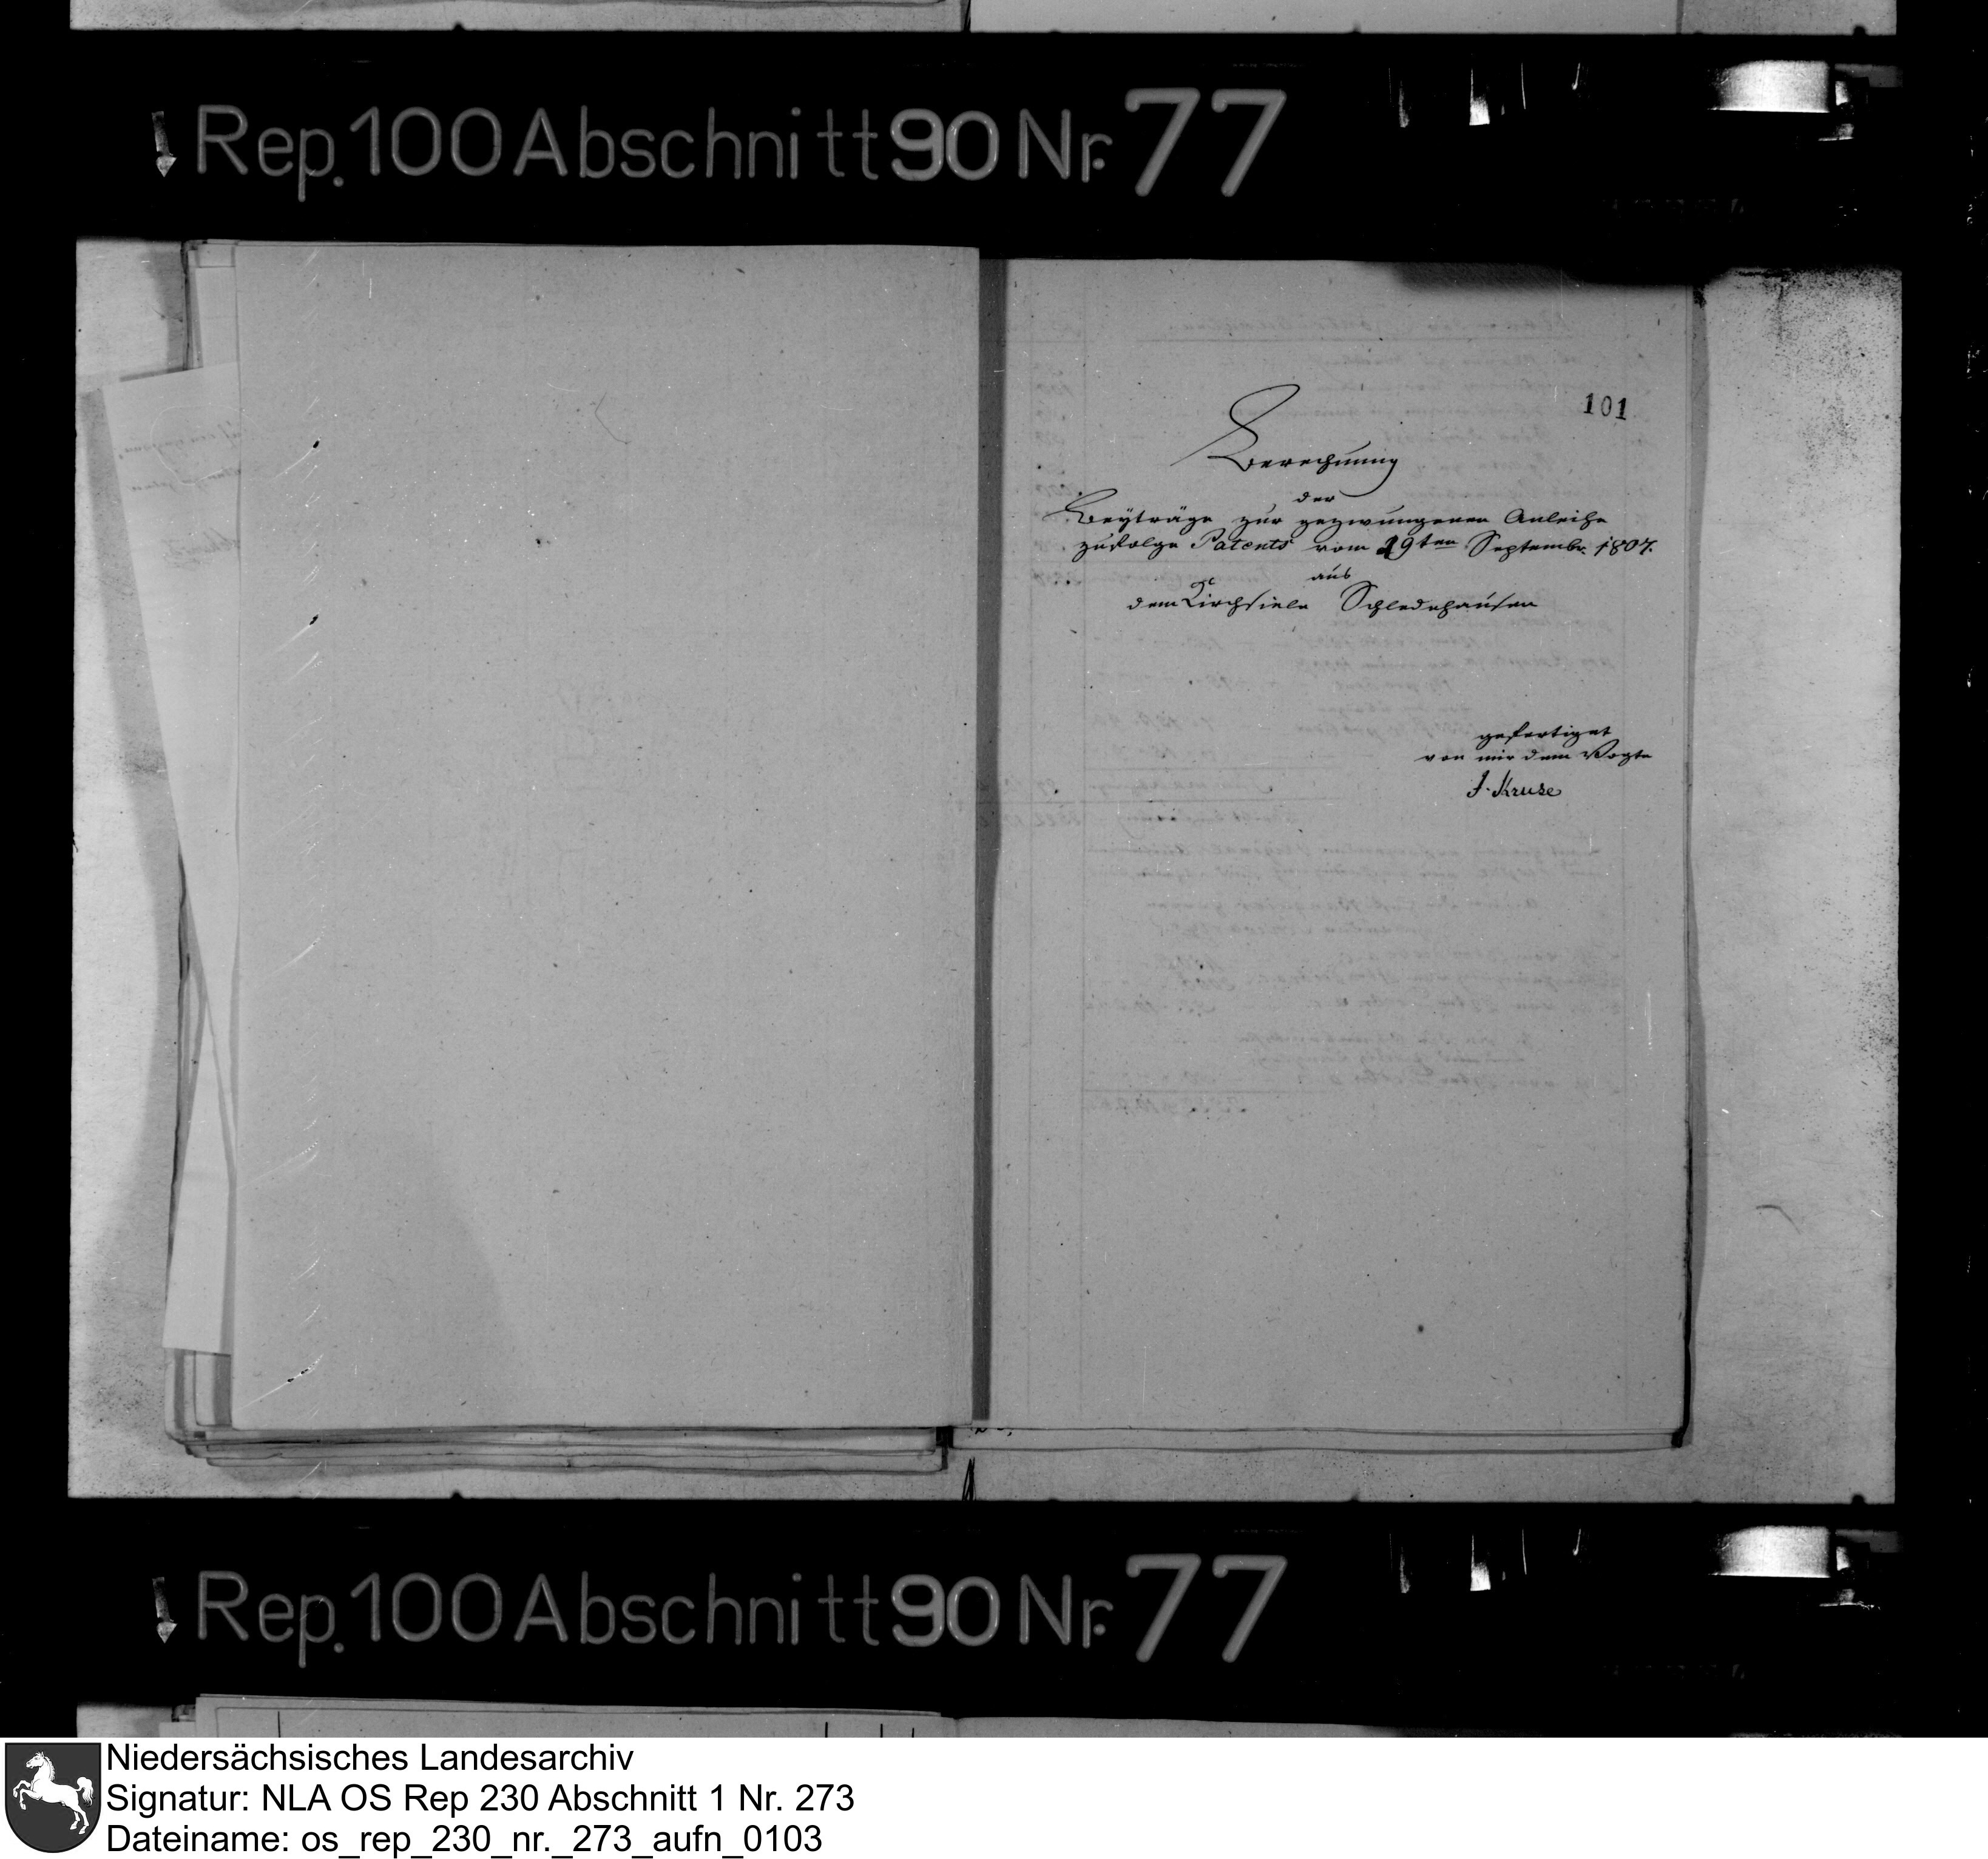 Rep. 100 Abschnitt 90 Nr. 77
101
Berechnung
der
Beyträge zur gezwungenen Anleihe
zufolge Patents vom 29ten Septembr. 1807.
aus
dem Kirchspiele Schledehausen
gefertiget
von mir dem Vogte
J. Kruse
Rep. 100 Abschnitt 90 Nr. 77
Niedersächsisches Landesarchiv
Signatur: NLA OS Rep 230 Abschnitt 1 Nr. 273
Dateiname: os_rep_230_nr._273_aufn_0103